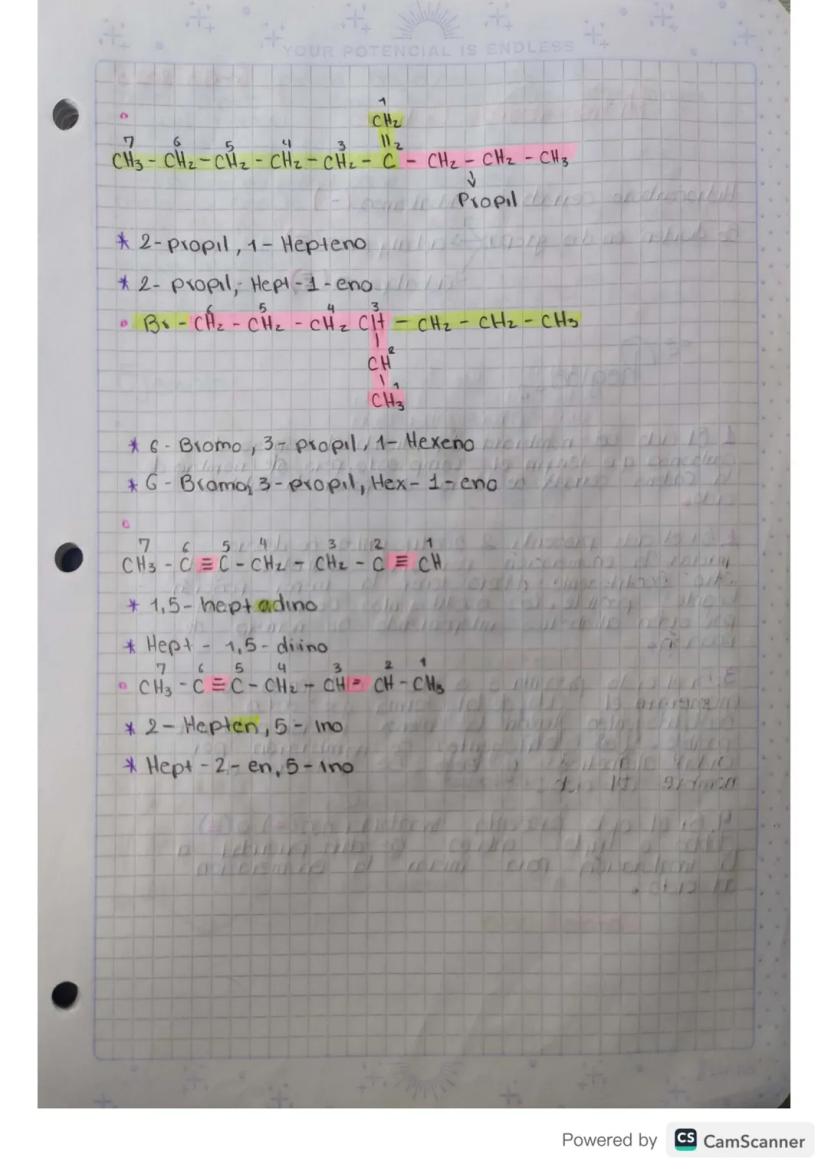 YOUR POTENCIAL IS ENDLESS
1
CH2
7 6 5 4 3 || 2
CH3 - CH2 - CH2 - CH2 - CH2 - C - CH2 - CH2 - CH3
↓
Propil
* 2-propil, 1- Hepteno
* 2- propil, Hept-1-eno
6 5 4 3
Br - CH2 - CH2 - CH2 CH - CH2 - CH2 - CH3
|
CH 2
| 1
CH3
* 6 - Bromo, 3- propil, 1- Hexeno
* 6 - Bromo, 3-propil, Hex- 1-eno
7 6 5 4 3 2 1
CH3 - C ≡ C - CH2 - CH2 - C ≡ CH
* 1,5- heptadino
* Hept - 1,5- diino
7 6 5 4 3 2 1
CH3 - C ≡ C - CH2 - CH = CH - CH3
* 2- Hepten, 5- ino
* Hept -2- en, 5-ino
Powered by CS CamScanner